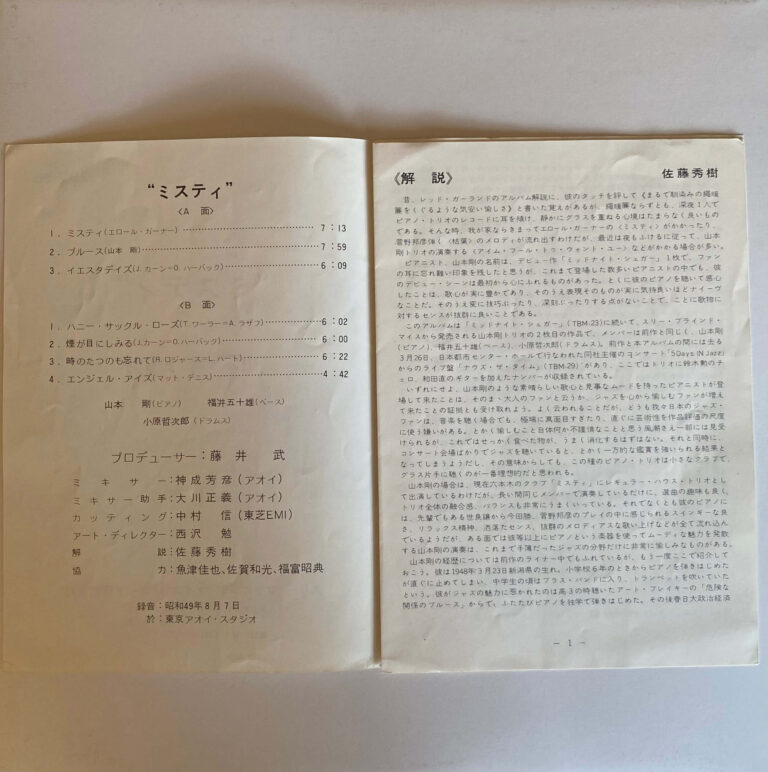 “ミスティ”
〈A 面〉
1．ミスティ(エロール・ガーナー) 7：13
2．ブルース(山本 剛) 7：59
3．イエスタデイズ(J.カーン=O.ハーバック) 6：09
〈B 面〉
1．ハニー・サックル・ローズ(T.ワーラー=A.ラザフ) 6：02
2．煙が目にしみる(J.カーン=O.ハーバック) 6：00
3．時のたつのも忘れて(R.ロジャース=L.ハート) 6：22
4．エンジェル・アイズ(マット・デニス) 4：42
山本 剛(ピアノ) 福井五十雄(ベース)
小原哲次郎(ドラムス)
プロデューサー：藤井 武
ミキサー：神成芳彦(アオイ)
ミキサー助手：大川正義(アオイ)
カッティング：中村 信(東芝EMI)
アート・ディレクター：西沢 勉
解説：佐藤秀樹
協力：魚津佳也、佐賀和光、福富昭典
録音：昭和49年8月7日
於：東京アオイ・スタジオ
《解 説》 佐藤秀樹
昔、レッド・ガーランドのアルバム解説に、彼のタッチを評して《まるで馴染みの縄暖
簾をくぐるような気安い愉しさ》と書いた覚えがあるが、縄暖簾ならずとも、深夜1人で
ピアノ・トリオのレコードに耳を傾け、静かにグラスを重ねる心境はたまらなく良いもの
である。そんな時、我が家ならきまってエロール・ガーナーの《ミスティ》がかかったり、
菅野邦彦弾く《枯葉》のメロディが流れ出すわけだが、最近は夜もふけるに従って、山本
剛トリオの演奏する《アイム・フール・トゥ・ウォント・ユー》などがかかる場合が多い。
ピアニスト、山本剛の名前は、デビュー作「ミッドナイト・シュガー」1枚で、ファン
の耳に忘れ難い印象を残したと思うが、これまで登場した数多いピアニストの中でも、彼
のデビュー・シーンは最初から心にふれるものがあった。とくに彼のピアノを聴いて感心
したことは、歌心が実に豊かであり、そのうえ表現そのものが実に気持良いほどナイーヴ
なことだ。そのうえ変に技巧ぶったり、深刻ぶったりする点がないことで、ことに歌物に
対するセンスが抜群に良いことである。
このアルバムは「ミッドナイト・シュガー」(TBM-23)に続いて、スリー・ブラインド・
マイスから発売される山本剛トリオの2枚目の作品で、メンバーは前作と同じく、山本剛
(ピアノ)、福井五十雄(ベース)、小原哲次郎(ドラムス)。前作と本アルバムの間には去る
3月26日、日本都市センター・ホールで行なわれた同社主催のコンサート「5Days IN Jazz」
からのライブ盤「ナウズ・ザ・タイム」(TBM-29)があり、ここではトリオに鈴木勲のチ
ェロ、和田直のギターを加えたナンバーが収録されている。
いずれにせよ、山本剛のような素晴らしい歌心と見事なムードを持ったピアニストが登
場して来たことは、そのまま大人のファンと云うか、ジャズを心から愉しむファンが増え
て来たことの証拠とも受け取れよう。よく云われることだが、どうも我々日本のジャズ・
ファンは、音楽を聴く場合でも、極端に真面目すぎたり、直ぐに芸術性を作品評価の尺度
に使う嫌いがある。とかく愉しむこと自体何か不謹慎なことと思う風潮さえ一部には見受
けられるが、これではせっかく食べた物が、うまく消化するはずはない。それと同時に、
コンサート会場ばかりでジャズを聴いていると、とかく一方的な鑑賞を強いられる結果と
なってしまうようだし、その意味からしても、この種のピアノ・トリオは小さなクラブで、
グラス片手に聴くのが一番理想的だと思われる。
山本剛の場合は、現在六本木のクラブ「ミスティ」にレギュラー・ハウス・トリオとし
て出演しているわけだが、長い間同じメンバーで演奏しているだけに、選曲の趣味も良く、
トリオ全体の融合感、バランスも非常にうまくいっている。それでなくとも彼のピアノに
は、先輩でもある世良譲から今田勝、菅野邦彦のプレイの中に感じられるスインギーな良
さ、リラックス精神、洒落たセンス、抜群のメロディアスな歌い上げなどが全て流れ込ん
でいるようだが、ある面では彼等以上にピアノという楽器を使ってムーディな魅力を発散
する山本剛の演奏は、これまで手薄だったジャズの分野だけに非常に愉しみなものがある。
山本剛の経歴については前作のライナー中でもふれているが、もう一度ここで紹介して
おこう。彼は1948年3月23日新潟県の生れ。小学校6年のときからピアノを弾きはじめた
が直ぐに止めてしまい、中学生の頃はブラス・バンドに入り、トランペットを吹いていた
という。彼がジャズの魅力に惹かれたのは高3の時聴いたアート・ブレイキーの「危険な
関係のブルース」からで、ふたたびピアノを独学で弾きはじめた。その後春日大政治経済
－1－